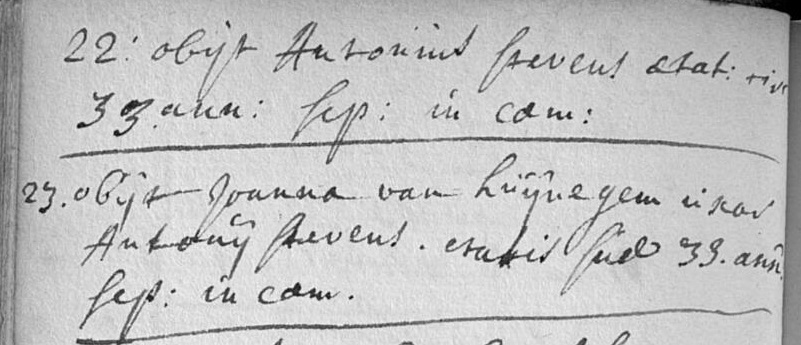 22: obijt Antonius stevens ætat: circ
33. ann: sep: in cœm:
23. obijt Joanna van huÿnegem uxor
Antonÿ stevens. etatis suæ 33. ann.
sep: in cœm.